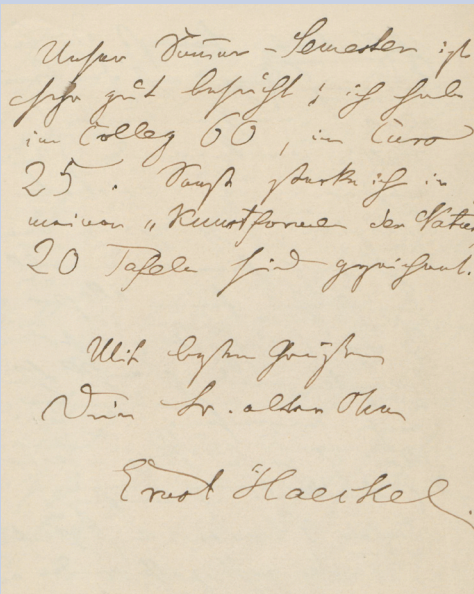 Unser Sommer-Semester ist
sehr gut besucht; ich habe
im Colleg 60, im Curs
25. Sonst stecke ich in
meinen „Kunstformen der Natur
20 Tafeln sind gezeichnet.
Mit besten Grüßen
Dein tr. alter
Ernst Haeckel.